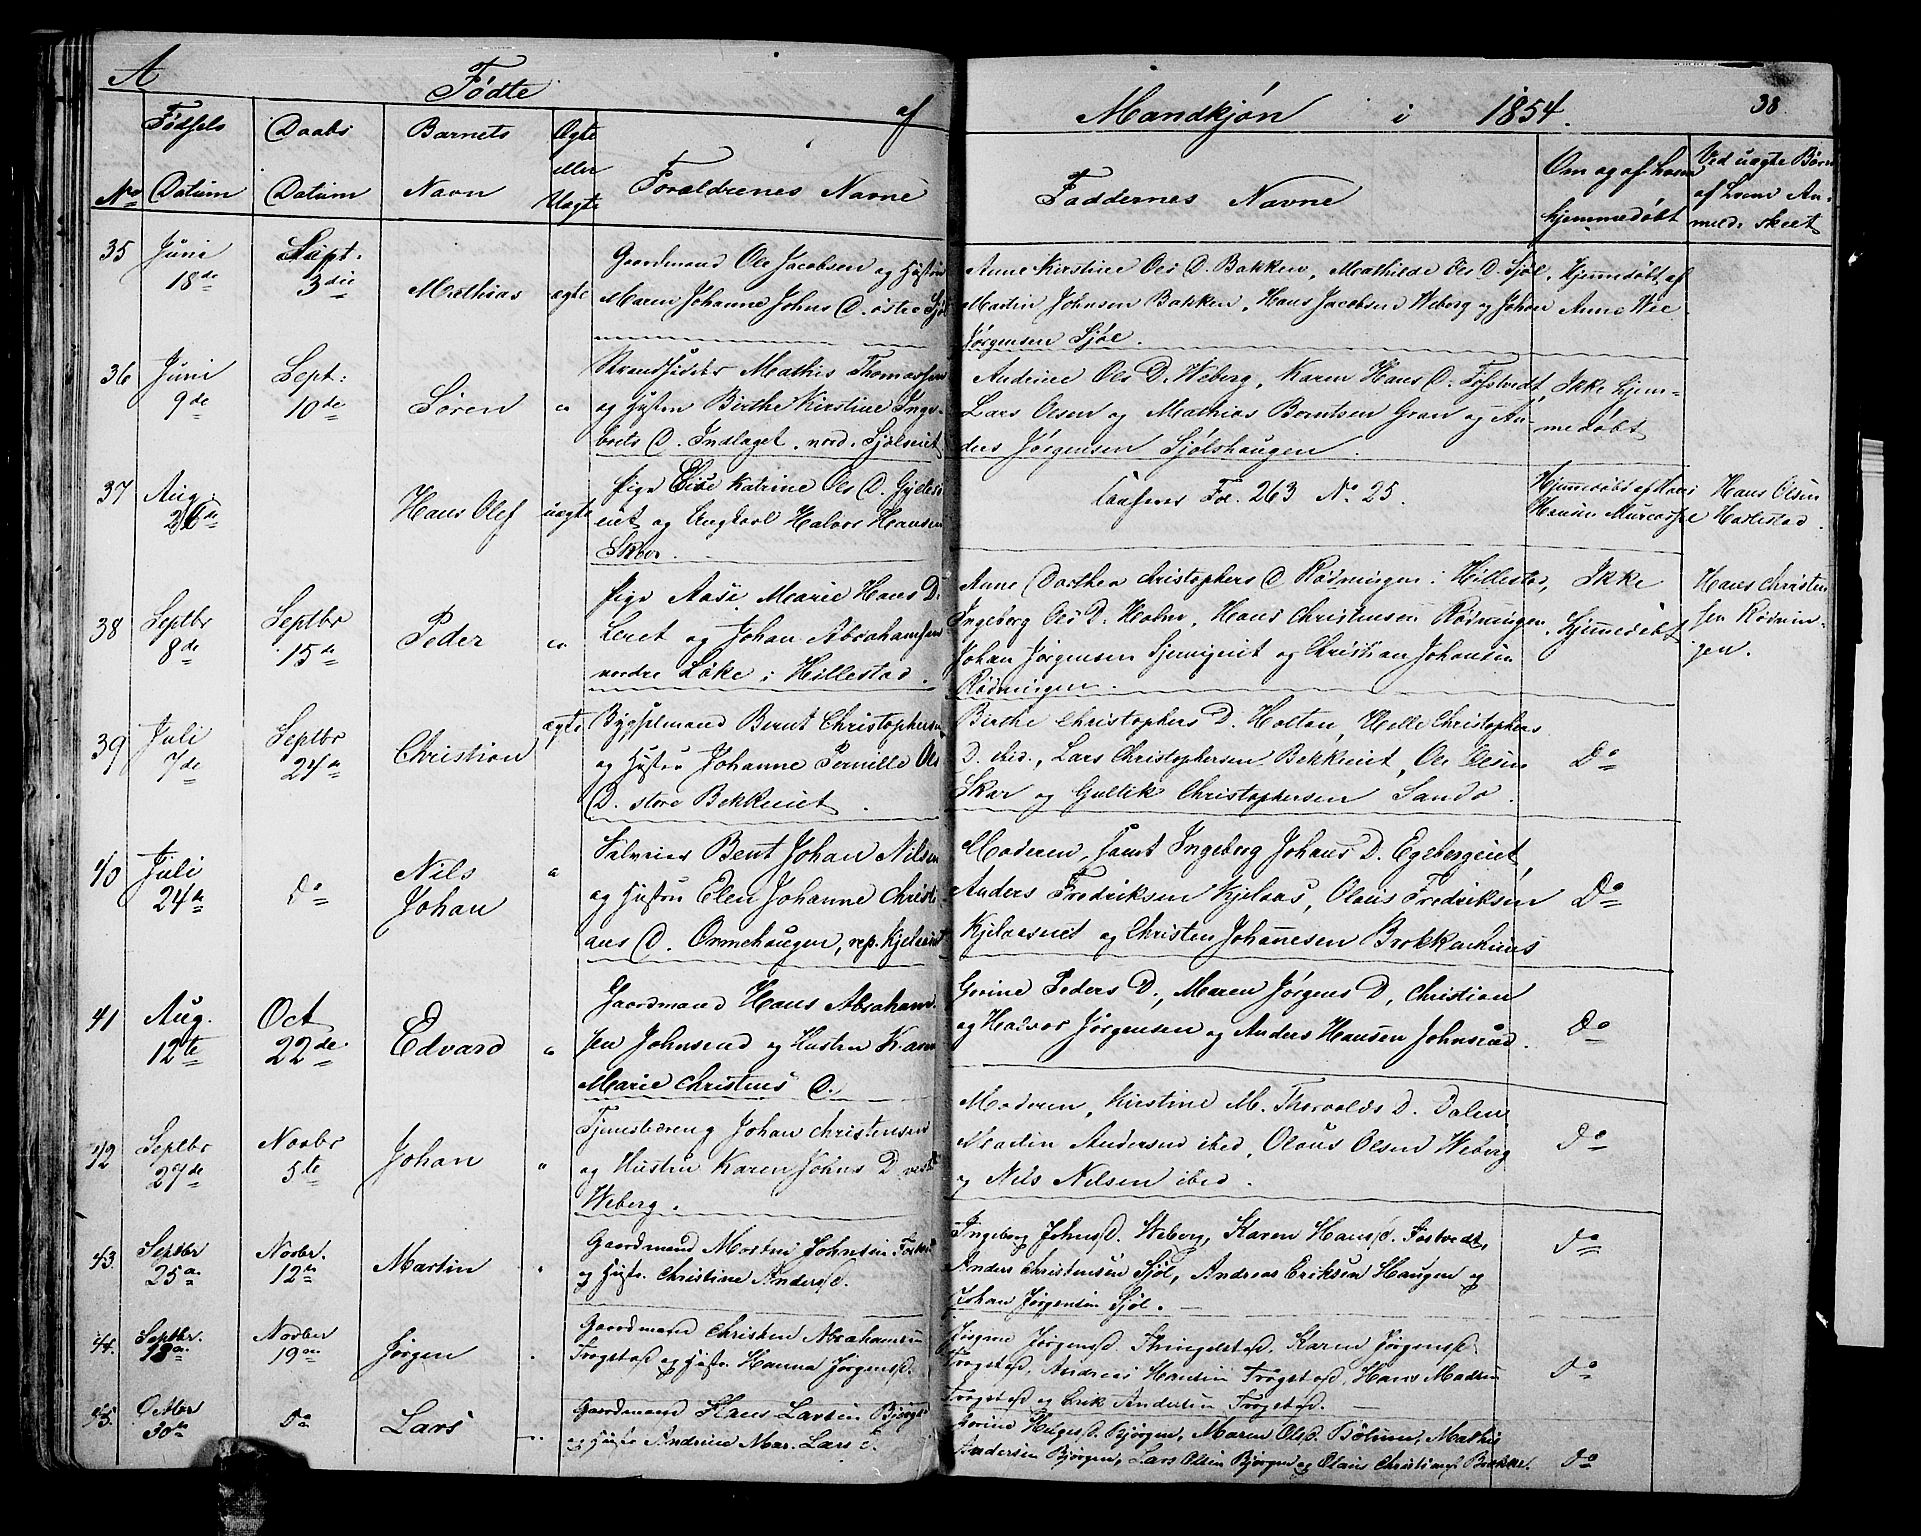 A
Fødte af
Mandkjøn i 1854.
38
No
Fødsels Datum
Daabs Datum
Barnets Navn
Ægte eller Uægte
Forældrenes Navne
Faddernes Navne
Om og af hvem hjemmedøbt
Ved uægte Børn af hvem Anmeld. skeet
35 Juni 18de
Sept. 3die
Mathias
ægte
Gaardmand Ole Jacobsen og Hustru
Maren Johanne Johns D. østre Sjøl
Anne Kirstine Ols D. Bakken, Mathilde Ols D. Sjøl,
Martin Johnsen Bakken, Hans Jacobsen Weberg og Johan
Jørgensen Sjøl.
Hjemmedøbt af
Anne
36 Juni 9de
Sept: 10de
Søren
"
Strandsidder Mathis Thomassen
og Hustru Birthe Kirstine Inge-
brets D. Indlaget. nord. Sjølseiet
Andrine Ols D. Weberg, Karen Hans D. Fosstvedt,
Lars Olsen og Mathias Berntsen Gran og An-
ders Jørgensen Sjølshaugen.
Ikke hjem-
medøbt
37 Aug. 26de
Hans Olef
uægte
Pige Elise Katrine Ols D.
eiet og Ungkarl Halvor Hansen
Skoer.
Fol. 263 No 25.
Hjemmedøbt af
Hansen
Hans Olsen
Harlestad.
38 Septbr 8de
Septbr 15de
Peder
"
Pige Aase Marie Hans D.
Leret og Johan Abrahamsen
nordre Løke i Hillestad.
Anne Dorthea Christophers D. Rødningen i Hillestad,
Ingeberg Ols D. Holm, Hans Christensen Rødningen
Johan Jørgensen og Christian Johansen
Rødningen.
Ikke
Hjemmedøbt
Hans Christen
sen Rødnin-
gen.
39 Juli 7de
Septbr 24de
Christian
ægte
Bygselmand Bernt Christophersen
og Hustru Johanne Pernille Ols
D. store Bekkeiet.
Birthe Christophers D. Holtan, Helle Christophers
D. ibid., Lars Christophersen Bekkeiet, Ole Olsen
Skar og Gullik Christophersen Sando.
Do
40 Juli 24de
Do
Nils
Johan
"
Selveier Bent Johan Nilsen
og Hustru Elen Johanne Christi-
ans D. Ormehaugen, rep.
Moderen, samt Ingeborg Johans D. Egebergeiet,
Anders Fredriksen Kjelaas, Olaus Fredriksen
Kjelaaseiet og Christen Johanesen
Do
41 Aug. 12te
Oct 22de
Edvard
"
Gaardmand Hans Abraham-
sen Johnsrud og Hustru Karen
Marie Christens D.
Gorine Peders D., Maren Jørgens D., Christian
og Halvor Jørgensen og Anders Hansen Johnsrud.
Do
42 Septbr 27de
Novbr 5te
Johan
"
Johan Christensen
og Hustru Karen Johns D vestre
Weberg.
Moderen, Kirstine M. Thorvalds D. Dalen
Martin Andersen ibid, Olaus Olsen Weberg
og Nils Nilsen ibid.
Do
43. Septbr 25de
Novbr. 12te
Martin
"
Gaardmand Morten Johnsen
og Hustr. Christine Anders D.
Ingeborg Johns D. Weberg, Karen Hans D. Fostvedt,
Anders Christensen Sjøl, Andreas Eriksen Haugen og
Johan Jørgensen Sjøl.
Do
44. Septbr. 18de
Novbr 19de
Jørgen
"
Gaardmand Christen Abrahamsen
Trogstad og Hustr. Hanna Jørgens D.
Jørgine Jørgens D. Karen Jørgens D.
Trogstad, Andreas Hansen Trogstad, Hans Madsen
Trogstad og Erik Andersen Trogstad.
Do
45. Octbr 30te
Do
Lars
"
Gaardmand Hans Larsen Bjørge
og Hustr. Andrine Mar. Lars D.
Bjørgen, Maren Ols D. Mathis
Andersen Bjørgen, Lars Olsen Bjørgen og Olaus Christians.
Do